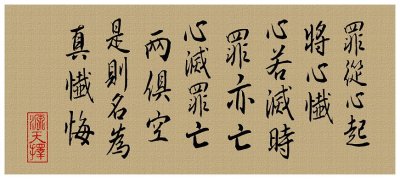 罪從心起
將心懺
心若滅時
罪亦亡
心滅罪亡
兩俱空
是則名為
真懺悔